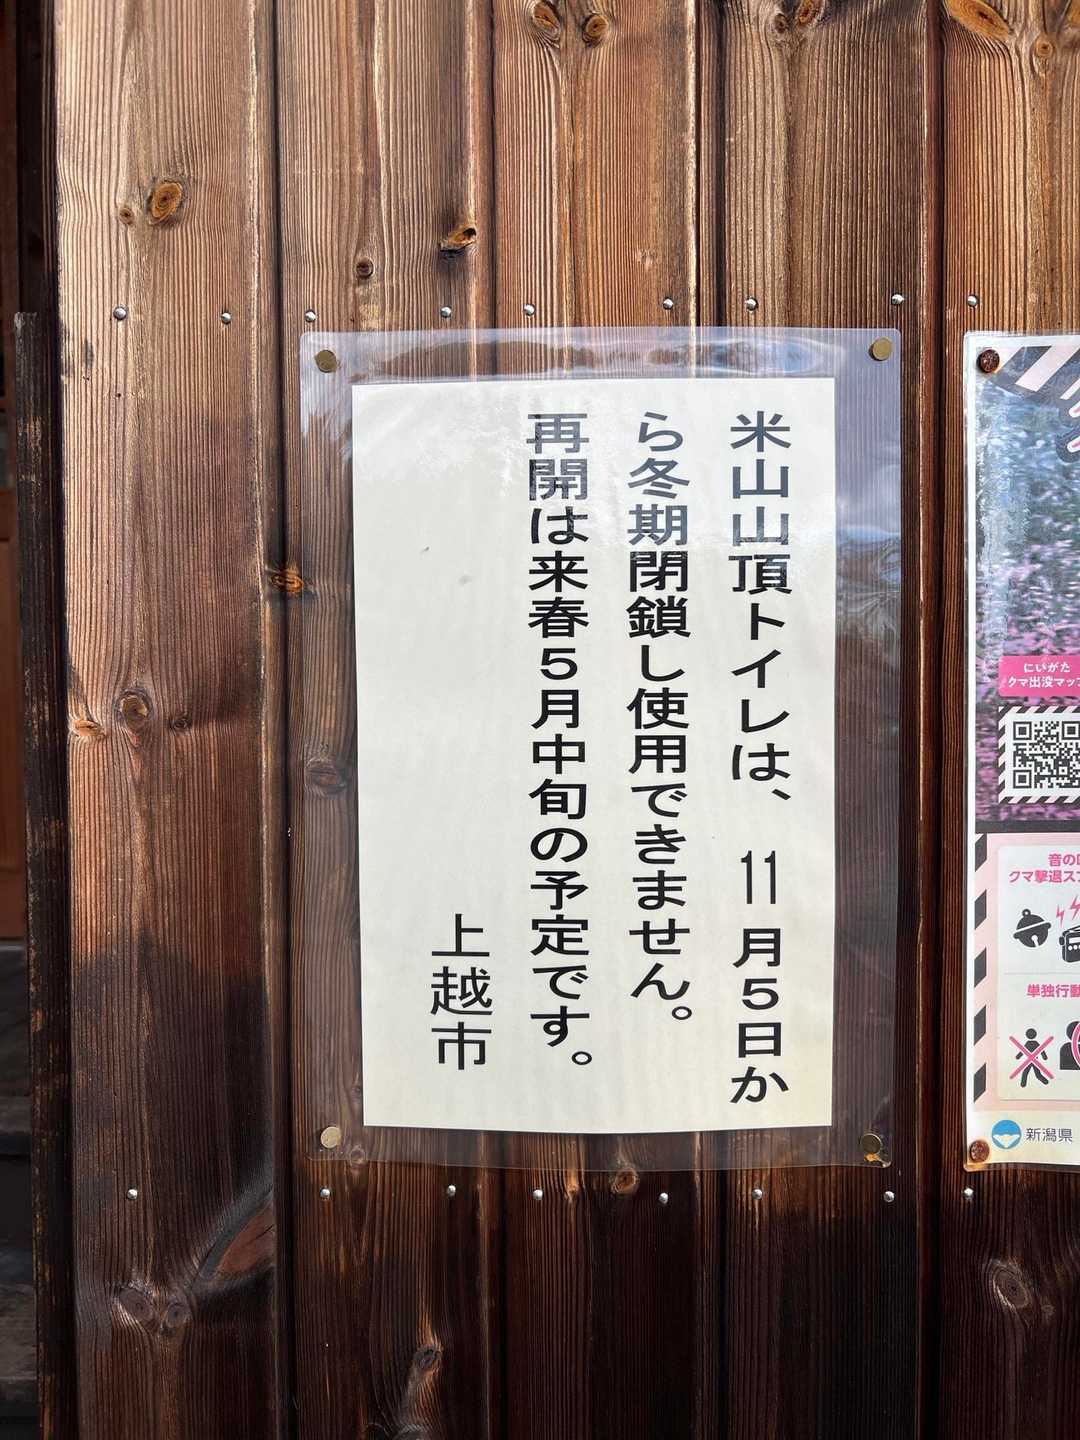 米山山頂トイレは、11月5日か
ら冬期閉鎖し使用できません。
再開は来春5月中旬の予定です。
上越市
にいがた
クマ出没マップ
音の
クマ撃退ス
単独行動
新潟県